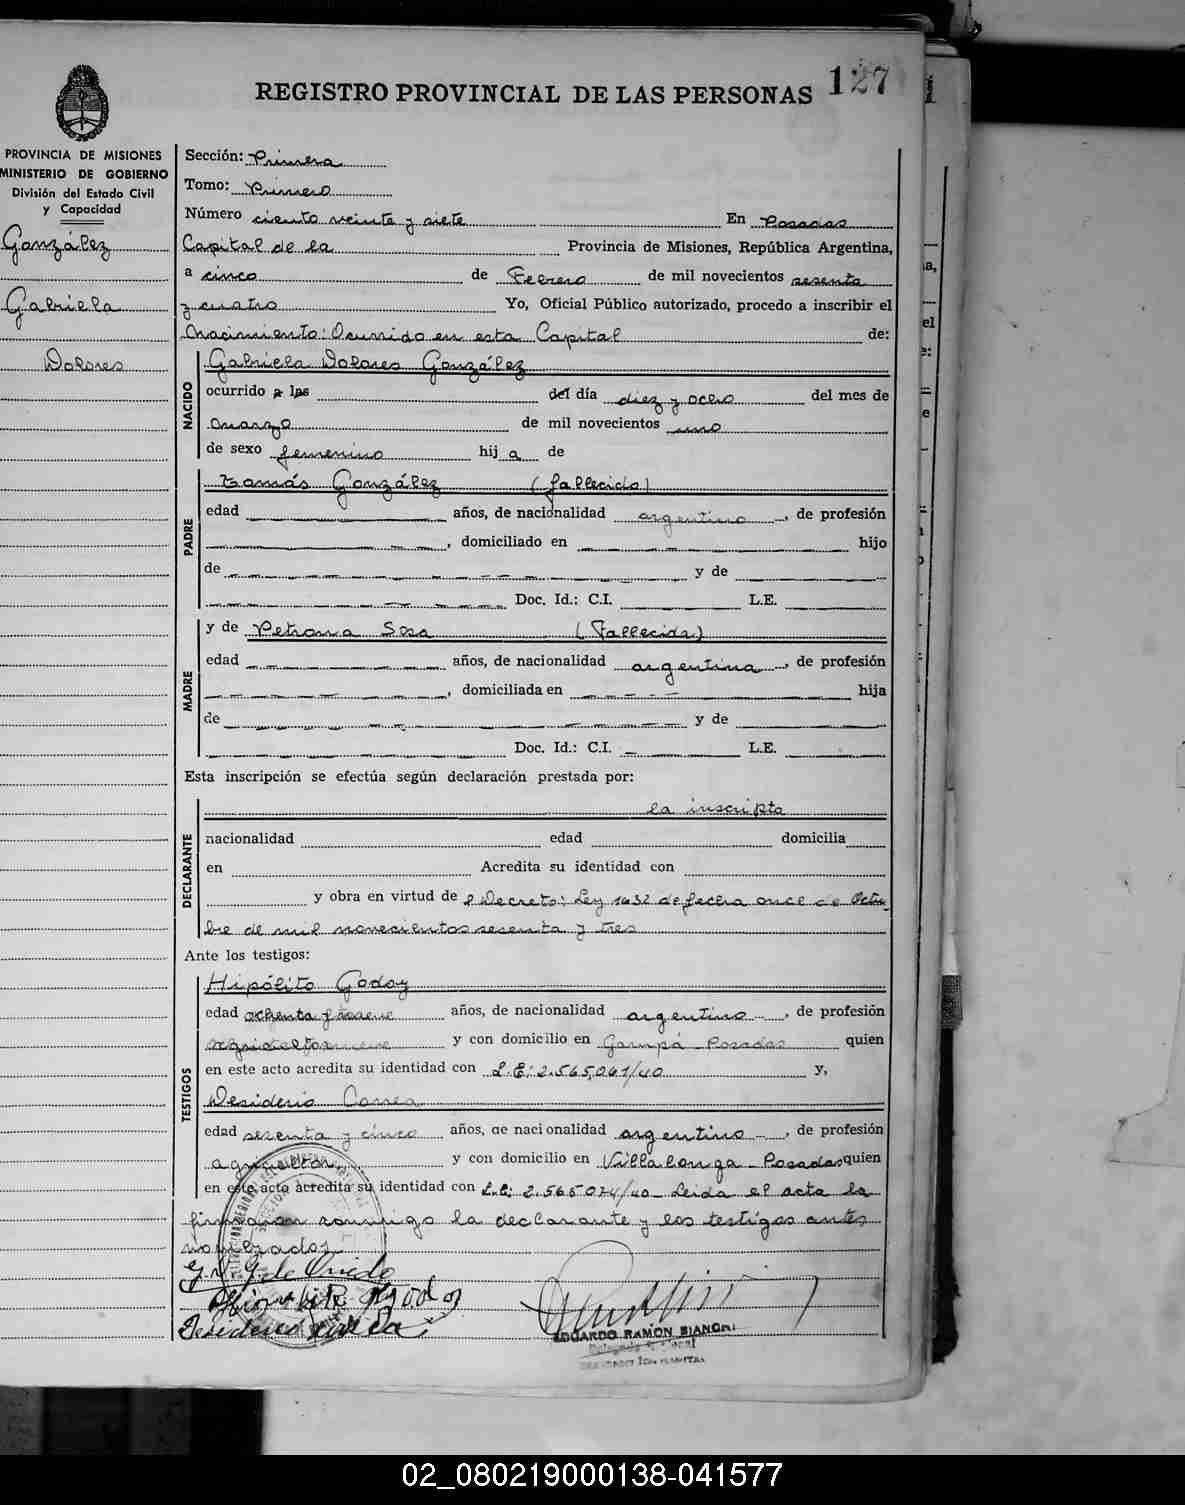 127
REGISTRO PROVINCIAL DE LAS PERSONAS
PROVINCIA DE MISIONES
MINISTERIO DE GOBIERNO
División del Estado Civil
y Capacidad
González
Gabriela
Dolores
Sección: Primera
Tomo: Primero
Número ciento veinte y siete En Posadas
Capital de la Provincia de Misiones, República Argentina,
a cinco de Febrero de mil novecientos sesenta
y cuatro Yo, Oficial Público autorizado, procedo a inscribir el
Nacimiento: Ocurrido en esta Capital de:
NACIDO
Gabriela Dolores González
ocurrido a las del día diez y ocho del mes de
Marzo de mil novecientos uno
de sexo femenino hij a de
PADRE
Tomás González (fallecido)
edad años, de nacionalidad argentino, de profesión
, domiciliado en hijo
de y de
Doc. Id.: C.I. L.E.
MADRE
y de Petrona Sosa (Fallecida)
edad años, de nacionalidad argentina, de profesión
, domiciliada en hija
de y de
Doc. Id.: C.I. L.E.
Esta inscripción se efectúa según declaración prestada por:
DECLARANTE
la inscripta
nacionalidad edad domicilia
en Acredita su identidad con
y obra en virtud de Decreto: Ley 1632 de fecha once de Octu
bre de mil novecientos sesenta y tres
Ante los testigos:
TESTIGOS
Hipólito Godoy
edad años, de nacionalidad argentino, de profesión
y con domicilio en Garupá Posadas quien
en este acto acredita su identidad con L.E: 2.565.061/40 y,
Desiderio Correa
edad sesenta y cinco años, de nacionalidad argentino, de profesión
agricultor y con domicilio en Villalonga - Posadas quien
en este acto acredita su identidad con L.E: 2.565.074/40 - Leida el acta la
firmaron conmigo la declarante y los testigos antes
nombrados
G. D. G de Oviedo
EDUARDO RAMON BIANCHI
02_080219000138-041577